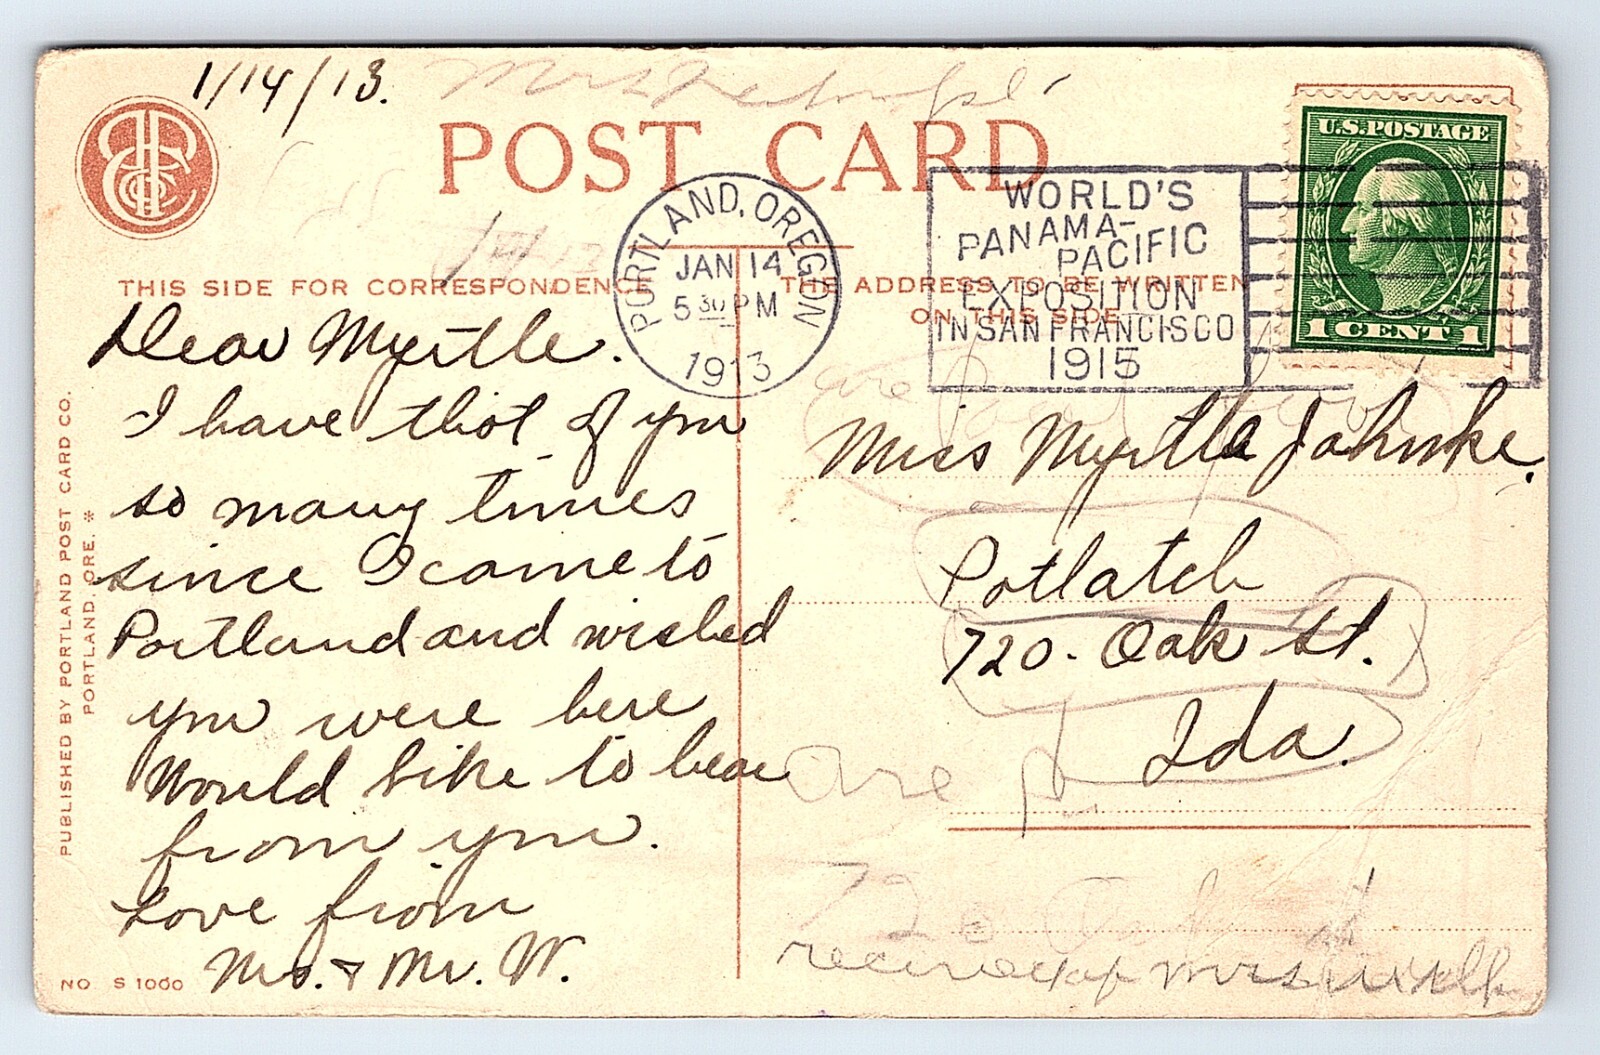 1/14/13.
POST CARD
PORTLAND, OREGON
JAN 14
5 30 PM
1913
WORLD'S
PANAMA-
PACIFIC
EXPOSITION
IN SAN FRANCISCO
1915
U.S. POSTAGE
1 CENT 1
THIS SIDE FOR CORRESPONDENCE
THE ADDRESS TO BE WRITTEN
ON THIS SIDE
Dear Myrtle.
I have thot of you
so many times
since I came to
Portland and wished
you were here
Would like to hear
from you.
Love from
Mrs. & Mr. W.
Miss Myrtle Jahnke.
Potlatch
720. Oak St.
Ida.
are
720 Oak st
PUBLISHED BY PORTLAND POST CARD CO.
PORTLAND, ORE. *
NO S 1000